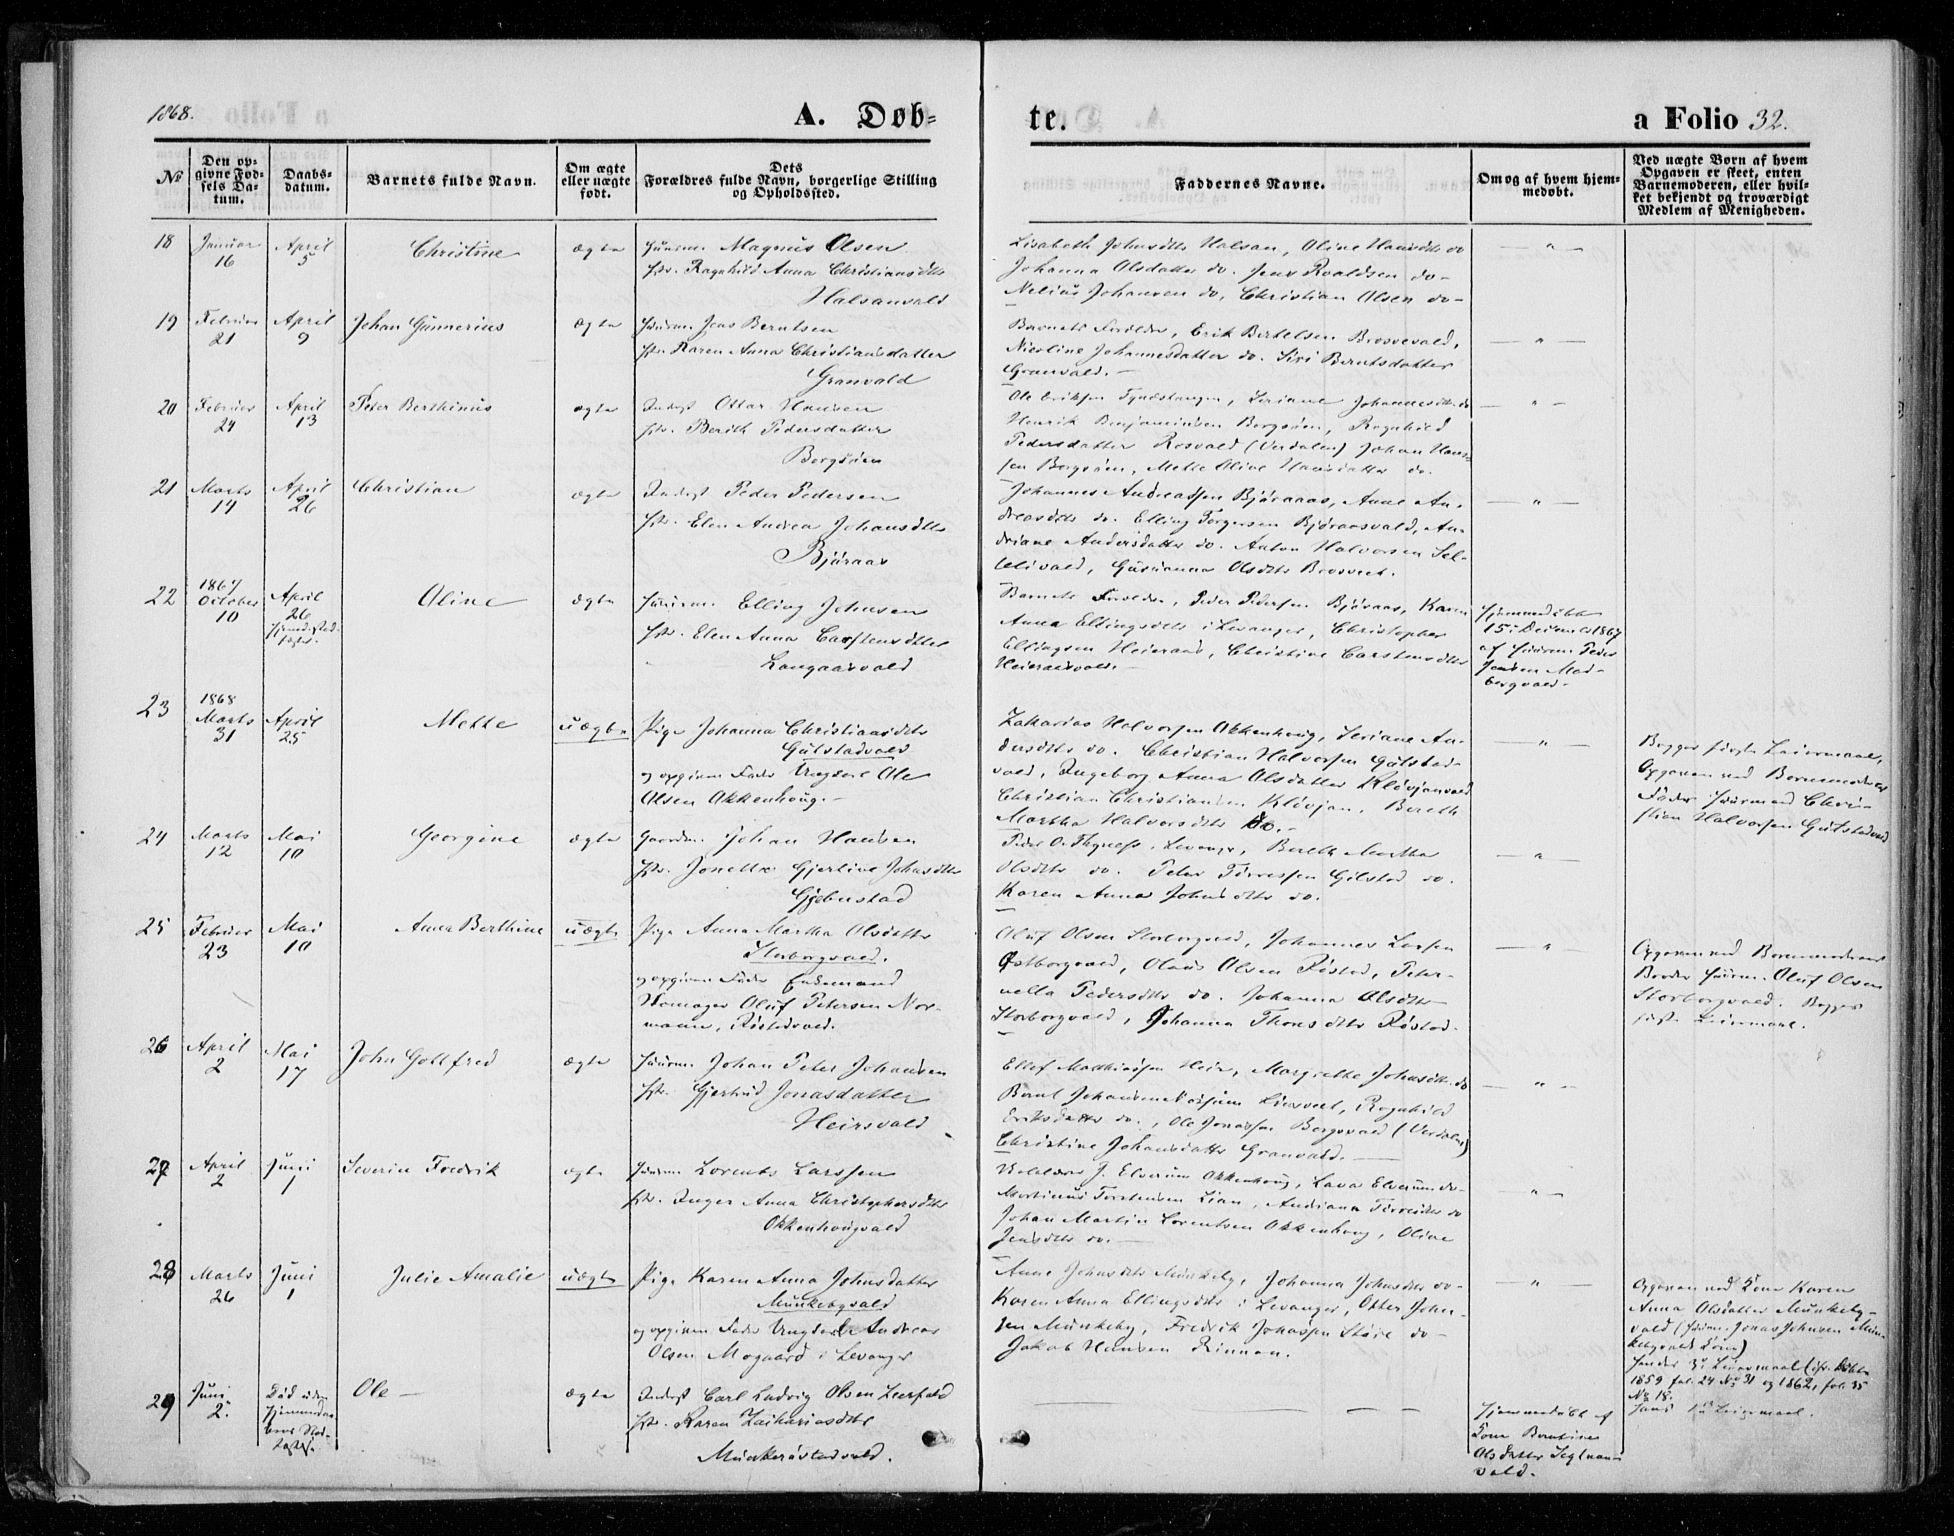 1868.
A. Døb=
te.
a Folio 32.
№
Den op=
givne Fød=
sels Da=
tum.
Daabs=
datum.
Barnets fulde Navn.
Om ægte
eller uægte
født.
Dets
Forældres fulde Navn, borgerlige Stilling
og Opholdssted.
Faddernes Navne.
Om og af hvem hjem=
medøbt.
Ved uægte Børn af hvem
Opgaven er skeet, enten
Barnemoderen, eller hvil=
ket bekjendt og troværdigt
Medlem af Menigheden.
18
Januar
16
April
5
Christine
ægte
Huusm. Magnus Olsen
Hstr. Ragnhild Anna Christiansdtr
Halsanvald
Lisabeth Johnsdtr Halsan, Oline Hansdtr do
Johanna Olsdatter do. Jens Roaldsen do-
Nelius Johansen do, Christian Olsen do-
19
Februar
21
April
9
Johan Gunnerius
ægte
Huusm. Jens Berntsen
Hstr Karen Anna Christiansdatter
Granvald
Barnets Forældre, Erik Bertelsen Brosvevald,
Nicoline Johannesdatter do. Siri Berntsdatter
Granvald.-
20
Februar
24
April
13
Peter Berthinus
ægte
Inderst Ottar Hansen
Hstr. Berith Pedersdatter
Borgsöen
Ole Eriksen Tynæstangen, Seriane Johannesdtr do
Henrik Benjaminsen Borgsöen, Ragnhild
Pedersdatter Rosvald (Verdalen) Johan Han-
sen Borgsöen, Mette Oline Hansdatter do.
21
Marts
14
April
26
Christian
ægte
Inderst Peder Pedersen
Hstr. Elen Andrea Johansdtr
Björaas
Johannes Andreassen Björaaas, Anne An-
dreasdtr do. Elling Torgersen Björaasvald, An-
driane Andersdatter do. Anton Halvorsen Sel-
livald, Gusianna Olsdtr Brosveet.
22
1867
October
10
April
26
Oline
ægte
Huusm. Elling Johnsen
Hstr. Elen Anna Carstensdtr
Langaasvald
Barnets Forældre, Peder Pedersen Björaas, Karen
Anna Ellingsdtr i Levanger, Christopher
Ellingsen Heieraas, Christine Carstensdtr
Heieraasvald.-
Hjemmedöbt
15de December 1867
af Huusm. Peder
Jensen Mad-
bergvald-
23
1868
Marts
31
April
25
Mette
uægte
Pige Johanna Christiansdtr
Gulstadvald
og opgiven Fader Ungkarl Ole
Olsen Okkenhoug.-
Zakarias Halvorsen Okkenhoug, Seriane An-
dersdtr do. Christian Halvorsen Gulstad-
vald, Ingeborg Anna Olsdatter Klövjanvald
Christian Christiansen Klövjan, Bereth
Martha Halvorsdtr do.-
Begges förste Leiermaal,
Opgaven ved Barnemoderens
Fader Huusmand Chri-
stian Halvorsen Gulstadvald
24
Marts
12
Mai
10
Georgine
ægte
Gaardm. Johan Hansen
Hstr. Jonetta Gjertine Johnsdtr
Gjebustad
Levanger, Bereth Martha
Olsdtr do. Peter Torresen Gilstad do.
Karen Anna Johnsdtr do.
25
Februar
23
Mai
10
Anna Berthine
uægte
Pige Anna Martha Olsdatter
Storborgvald.
og opgiven Fader Enkemand
Skomager Oluf Petersen Nor-
mann, Röstadvald.
Oluf Olsen Storborgvald, Johannes Larsen
Østborgvald, Olaus Olsen Röstad, Peter-
nella Pedersdtr do. Johanna Olsdtr
Storborgvald, Johanna Thonsdtr Röstad.
Opgaven ved Barnemoderens
Broder Huusm. Oluf Olsen
Storborgvald. Begges
förste Leiermaal.
26
April
2
Mai
17
John Gottfred
ægte
Huusm. Johan Peter Johansen
Hstr. Gjertrud Jonasdatter
Heirsvald
Ellef Mathiassen Heir, Margrethe Johnsdtr do
Bernt Johansen Liusveet, Ragnhild
Eriksdatter do., Ole Jonassen Borgsvald (Verdalen)
Christine Johansdatter Granvald.
27
April
2
Juni
1
Severin Fredrik
ægte
Huusm. Lorents Larssen
Hstr. Inger Anna Christophersdtr
Okkenhougvald
J. Elverum Okkenhoug, Lava Elverum do-
Martinus Torstensen Lian, Andriana Torresdtr do
Johan Martin Lorentsen Okkenhoug, Oline
Jensdtr do.-
28
Marts
26
Juni
1
Julie Amalie
uægte
Pige Karen Anna Johnsdatter
Munkebyvald
og opgiven Fader Ungkarl Andreas
Olsen Mogaard i Levanger
Anne Johnsdtr Munkeby, Johanna Johnsdtr do-
Karen Anna Ellingsdtr i Levanger, Otter John-
sen Munkeby, Fredrik Johassen Støre do-
Jakob Hansen Rinnan.
Opgaven ved Kone Karen
Anna Olsdatter Munkeby-
vald (Huusm. Jonas Johnsen Mun-
kebyvalds Kone)
Hendes 3die Leiermaal (cfr. Döbte
1859 fol. 24 No 31 og 1862, fol. 35
No 18.
Hans 1ste Leiermaal.
29
Juni
2.
Död uden
Ole
ægte
Inderst Carl Ludvig Olsen Leerfald
Hstr. Karen Zachariasdtr
Munkeröstadvald.
Hjemmedöbt af
Kone Berntine
Olsdatter
vald.